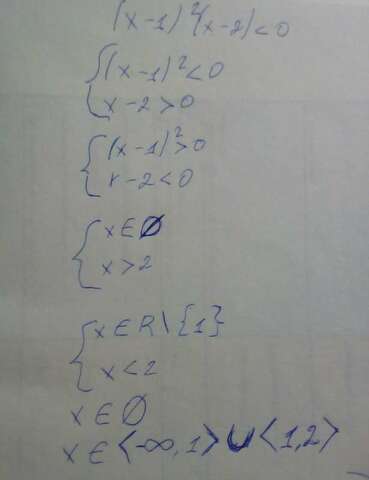 (x-1)²(x-2)<0
(x-1)²<0
x-2>0
(x-1)²>0
x-2<0
x∈∅
x>2
x∈R\{1}
x<2
x∈∅
x∈<-∞,1>∪<1,2>